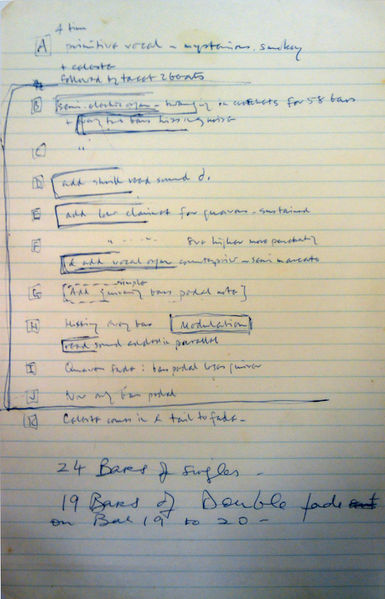 4 times
A primitive vocal - mysterious, smokey
+ celeste
followed by tacet 2 beats
B semi-electric organ - on crotchets for 58 bars
+ every two bars hissing noise
C "
D add shrill reed sound d.
E add low clarinet for - sustained
F " - - - - 8ve higher more penetrating
& add vocal organ counterpoint - semi marcato
simple
G [Add bass pedal note]
H Hissing every bar Modulation
reed sound in parallel
I fade : bass pedal
J Now only bass pedal
K Celeste comes in & tail to fade -
24 Bars of singles -
19 Bars of Double fade
on Bar 19 to 20 -